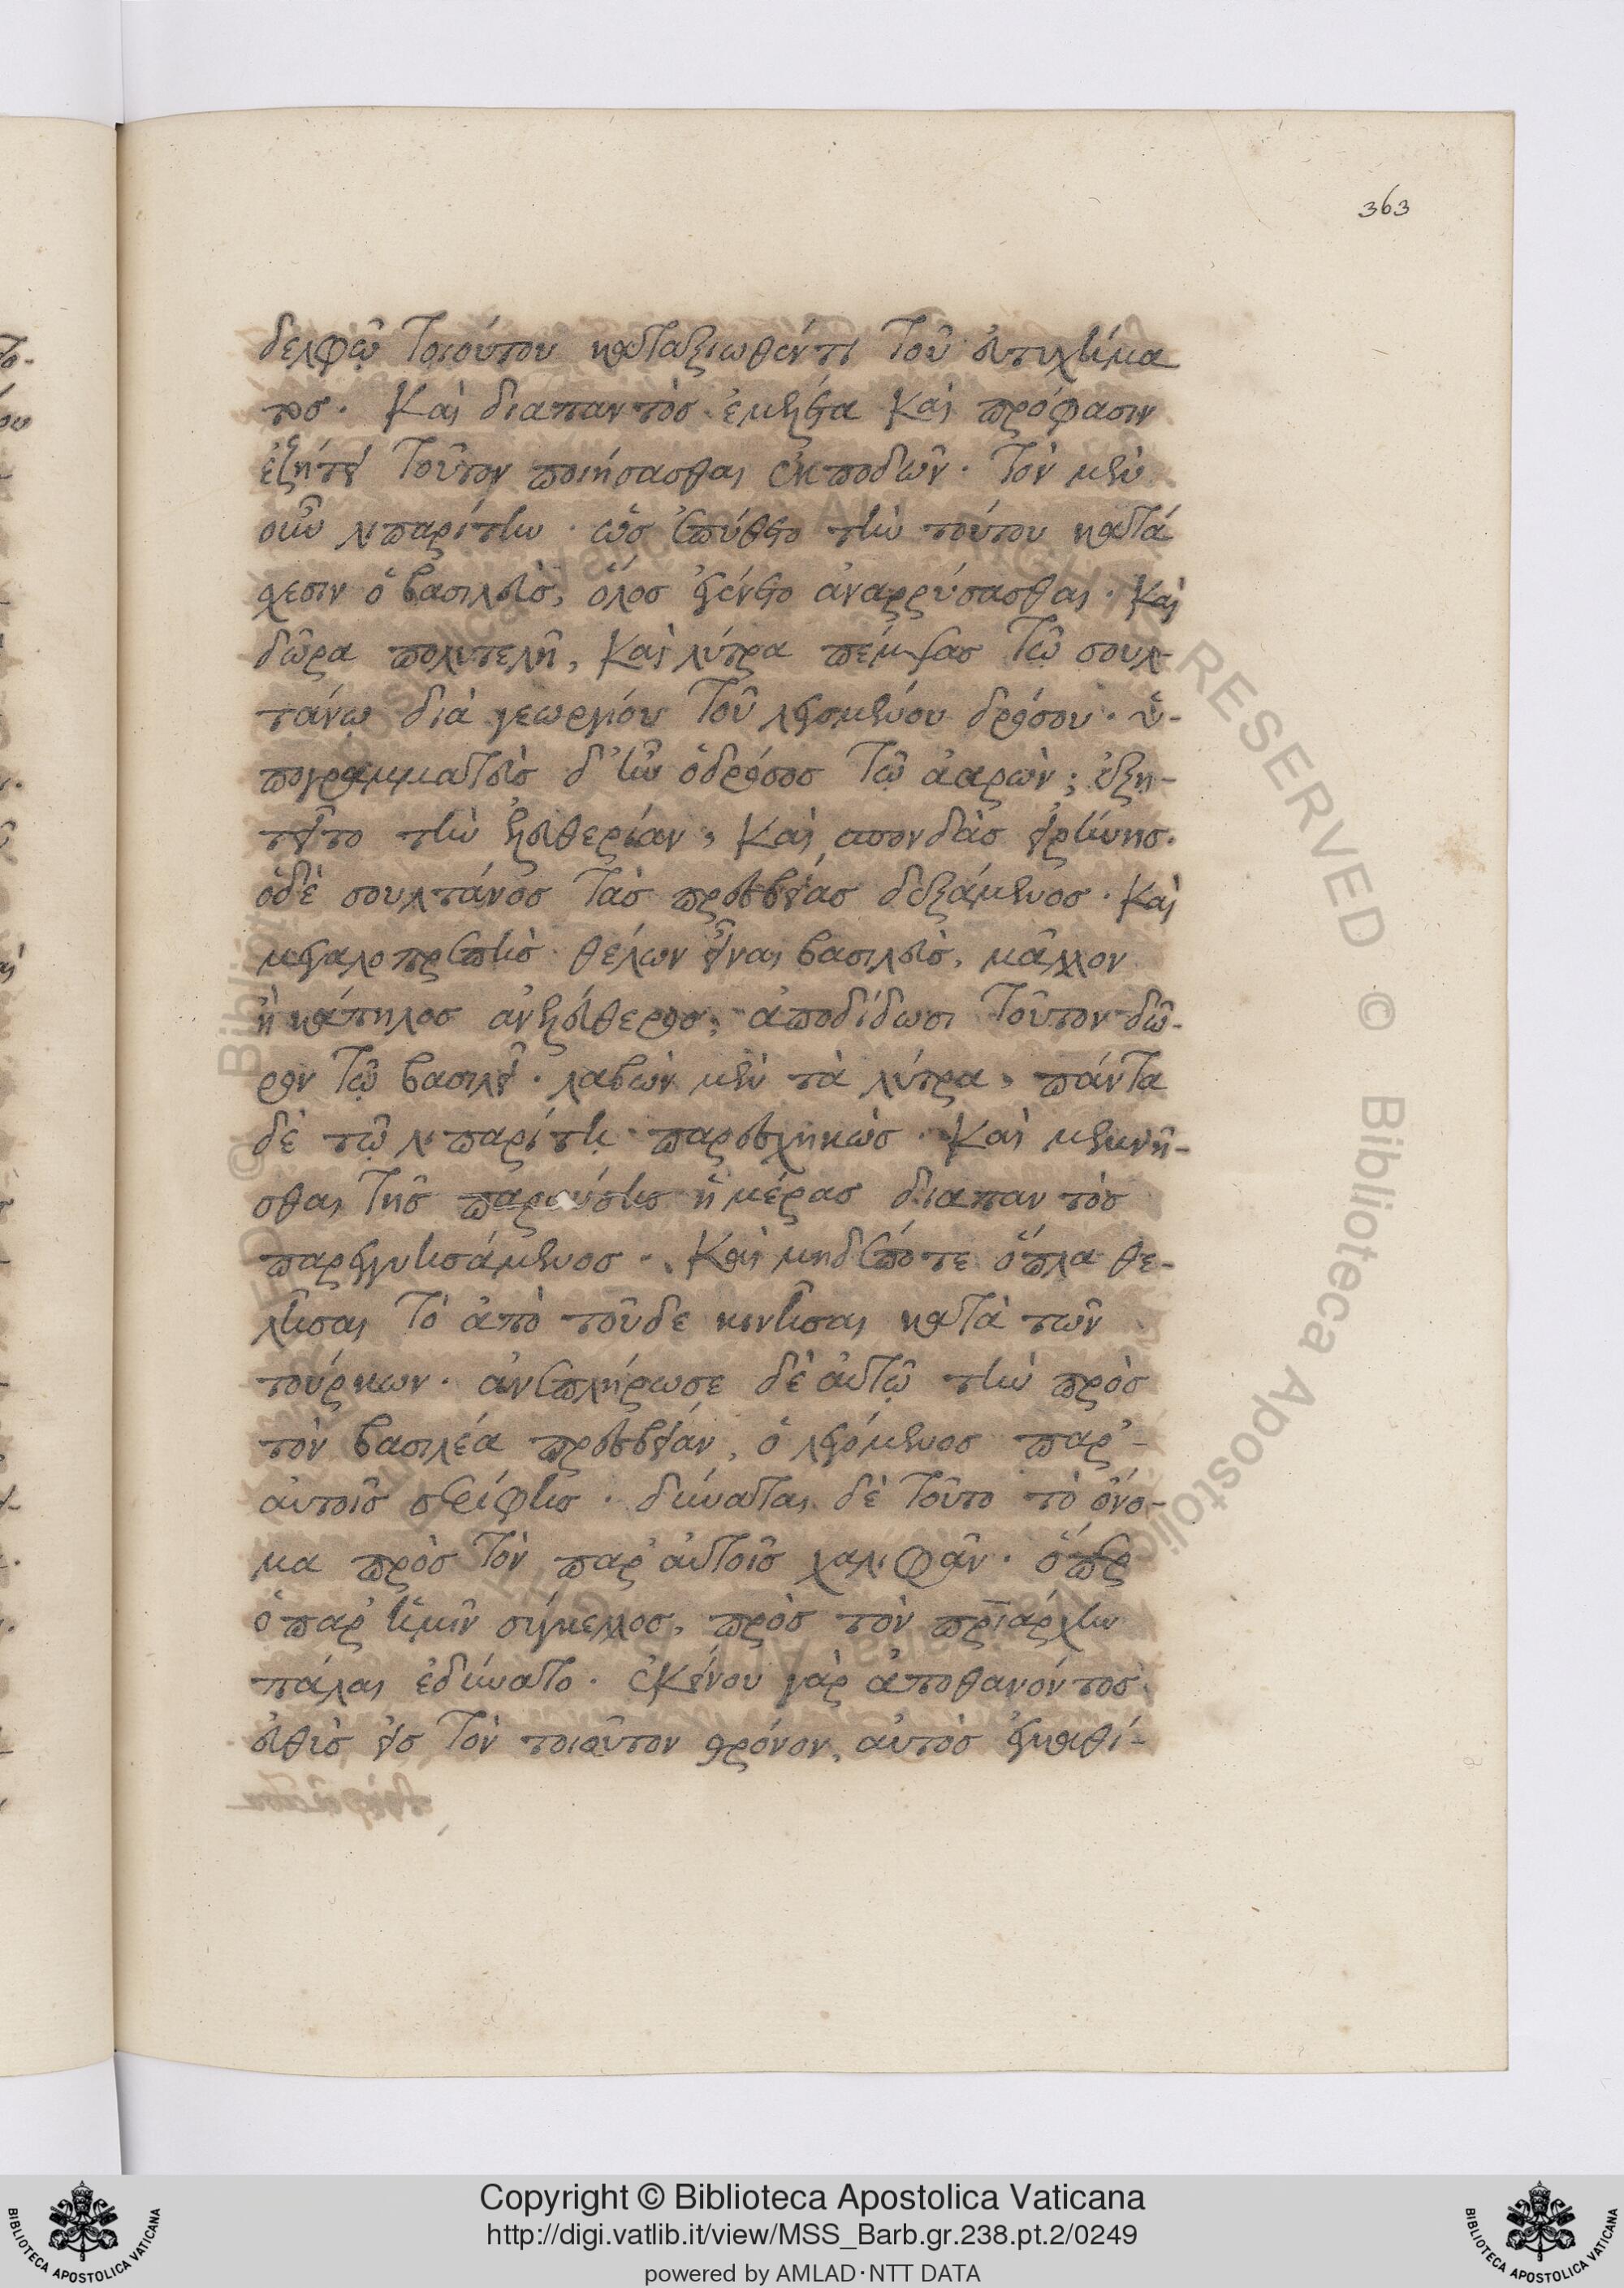 363
δελφῷ τοιούτου καταξιωθέντι τοῦ εὐτυχήμα
τος. καὶ διαπαντὸς ἐμήνια καὶ πρόφασιν
ἐζήτει τοῦτον ποιήσασθαι ἐκποδῶν. τὸν μὲν
οὖν λιπαρίτην. ὡς ἐπύθετο τὴν τούτου κατά
σχεσιν ὁ βασιλεὺς, ὅλος ἐγένετο ἀναρρύσασθαι. καὶ
δῶρα πολυτελῆ, καὶ λύτρα πέμψας τῷ σουλ-
τάνῳ διὰ γεωργίου τοῦ λεγομένου δρόσου. ὑ-
πογραμματεὺς δ' ἦν ὁ δρόσος τῷ ἀαρὼν; ἐξη-
τεῖτο τὴν ἐλευθερίαν, καὶ σπονδὰς εἰρήνης.
ὁ δὲ σουλτάνος τὰς πρεσβείας δεξάμενος. καὶ
μεγαλοπρεπὴς θέλων εἶναι βασιλεὺς, μᾶλλον
ἢ κάπηλος ἀνελεύθερος, ἀποδίδωσι τοῦτον δῶ-
ρον τῷ βασιλεῖ. λαβὼν μὲν τὰ λύτρα, πάντα
δὲ τῷ λιπαρίτῃ παρεσχηκὼς. καὶ μεμνῆ-
σθαι τῆς παρούσης ἡμέρας διαπαντὸς
παρεγγυησάμενος. καὶ μηδέποτε ὅπλα θε-
λῆσαι τὸ ἀπὸ τοῦδε κινῆσαι κατὰ τῶν
τούρκων. ἀνεπλήρωσε δὲ αὐτῷ τὴν πρὸς
τὸν βασιλέα πρεσβείαν, ὁ λεγόμενος παρ'-
αὐτοῖς σερίφης. δύναται δὲ τοῦτο τὸ ὄνο-
μα πρὸς τὸν παρ' αὐτοῖς χαλιφᾶν. ὅπερ
ὁ παρ' ἡμῖν σύγκελλος, πρὸς τὸν πριάρχην
πάλαι ἐδύνατο. ἐκείνου γὰρ ἀποθανόντος
εὐθὺς εἰς τὸν τοιοῦτον θρόνον, αὐτὸς ἐγκαθί-
© Biblioteca Apostolica Vaticana ALL RIGHTS RESERVED © Biblioteca Apostolica
Copyright © Biblioteca Apostolica Vaticana
http://digi.vatlib.it/view/MSS_Barb.gr.238.pt.2/0249
powered by AMLAD·NTT DATA
BIBLIOTECA APOSTOLICA VATICANA
BIBLIOTECA APOSTOLICA VATICANA